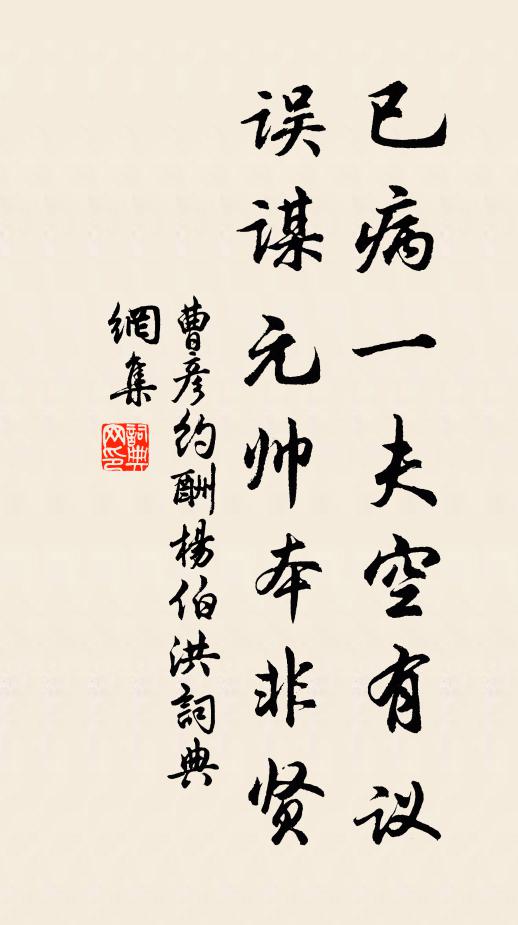 已病一夫空有议
误谋元帅本非贤
曹彦约酬楊伯洪詞典
網集
詞典
网印